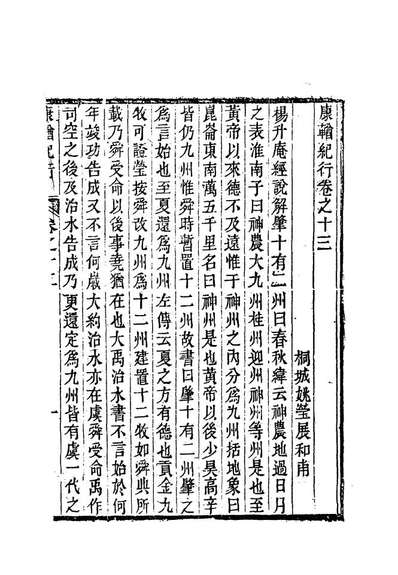 康輶紀行卷之十三
桐城姚瑩展和甫
楊升庵經說解肇十有二州曰春秋緯云神農地過日月
之表淮南子曰神農大九州桂州迎州神州等州是也至
黃帝以來德不及遠惟于神州之內分爲九州括地象曰
崑崙東南萬五千里名曰神州是也黃帝以後少昊高辛
皆仍九州惟舜時暫置十二州故書曰肇十有二州肇之
爲言始也至夏還爲九州左傳云夏之方有德也貢金九
牧可證瑩按舜改九州爲十二州建置十二牧如舜典所
載乃舜受命以後事堯猶在也大禹治水書不言始於何
年竣功告成又不言何嵗大約治水亦在虞舜受命禹作
司空之後及治水告成乃更還定爲九州皆有虞一代之
康輶紀行
卷之十三
一